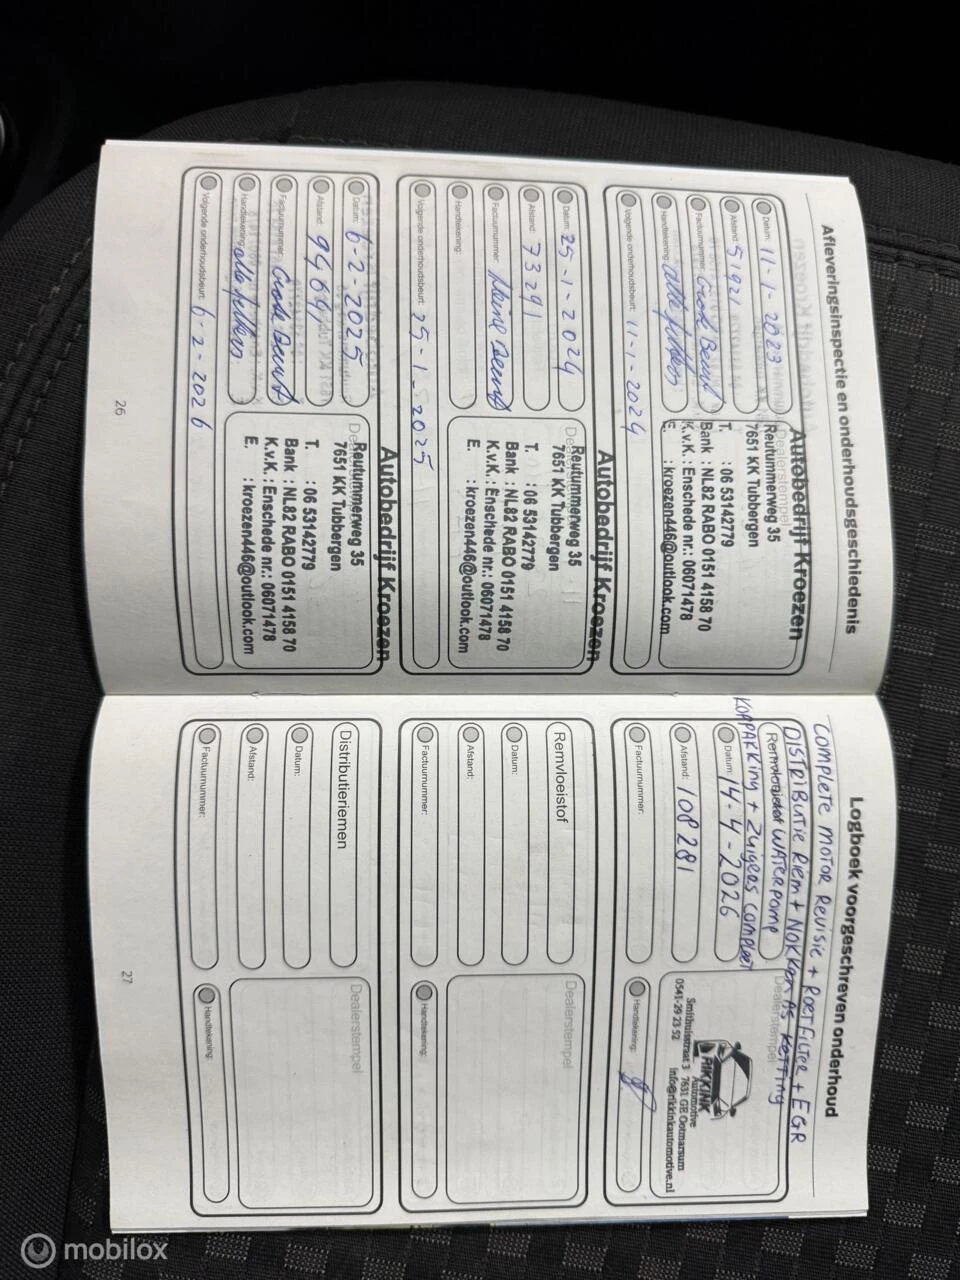 Afleveringsinspectie en onderhoudsgeschiedenis
Datum: 11-1-2023
Afstand: 51921
Factuurnummer: Grote Beurt
Handtekening: alle filters
Volgende onderhoudsbeurt: 11-1-2024
Dealerstempel
Autobedrijf Kroezen
Reutummerweg 35
7651 KK Tubbergen
T. : 06 53142779
Bank : NL82 RABO 0151 4158 70
K.v.K. : Enschede nr.: 06071478
E. : kroezen446@outlook.com
Datum: 25-1-2024
Afstand: 73291
Factuurnummer: kleine Beurt
Handtekening:
Volgende onderhoudsbeurt: 25-1-2025
Autobedrijf Kroezen
Reutummerweg 35
7651 KK Tubbergen
T. : 06 53142779
Bank : NL82 RABO 0151 4158 70
K.v.K. : Enschede nr.: 06071478
E. : kroezen446@outlook.com
Datum: 6-2-2025
Afstand:
Factuurnummer: Grote Beurt
Handtekening: alle filters
Volgende onderhoudsbeurt: 6-2-2026
Autobedrijf Kroezen
Reutummerweg 35
7651 KK Tubbergen
T. : 06 53142779
Bank : NL82 RABO 0151 4158 70
K.v.K. : Enschede nr.: 06071478
E. : kroezen446@outlook.com
26
Logboek voorgeschreven onderhoud
COMPLETE MOTOR REVISIE + ROETFILTER + EGR
DISTRIBUTIE RIEM + NOKKEN AS KETTING
Remvloeistof WATERPOMP
KOPPAKKING + ZUIGERS COMPLEET
Datum: 14-4-2026
Afstand: 108281
Factuurnummer:
Dealerstempel
RIKKINK
Automotive
Smithuisstraat 3 7631 GE Ootmarsum
0541-29 23 52 info@rikkinkautomotive.nl
Handtekening:
Remvloeistof
Datum:
Afstand:
Factuurnummer:
Dealerstempel
Handtekening:
Distributieriemen
Datum:
Afstand:
Factuurnummer:
Dealerstempel
Handtekening:
27
mobilox